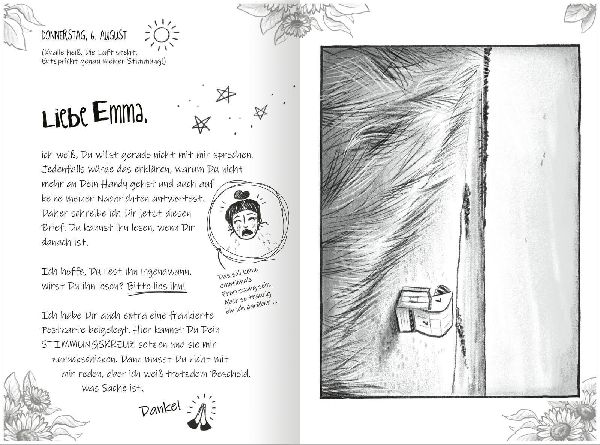 DONNERSTAG, 6. AUGUST
Entspricht genau meiner Stimmung!)
Liebe Emma,
ich weiß, Du willst gerade nicht mit mir sprechen.
Jedenfalls würde das erklären, warum Du nicht
mehr an Dein Handy gehst und auch auf
keine meiner Nachrichten antwortest.
Daher schreibe ich Dir jetzt diesen
Brief. Du kannst ihn lesen, wenn Dir
danach ist.
Ich hoffe, Du liest ihn irgendwann.
Wirst Du ihn lesen? Bitte lies ihn!
Ich habe Dir auch extra eine frankierte
Postkarte beigelegt. Hier kannst Du Dein
STIMMUNGSKREUZ setzen und sie mir
zurückschicken. Dann musst Du nicht mit
mir reden, aber ich weiß trotzdem Bescheid,
was Sache ist.
Danke!